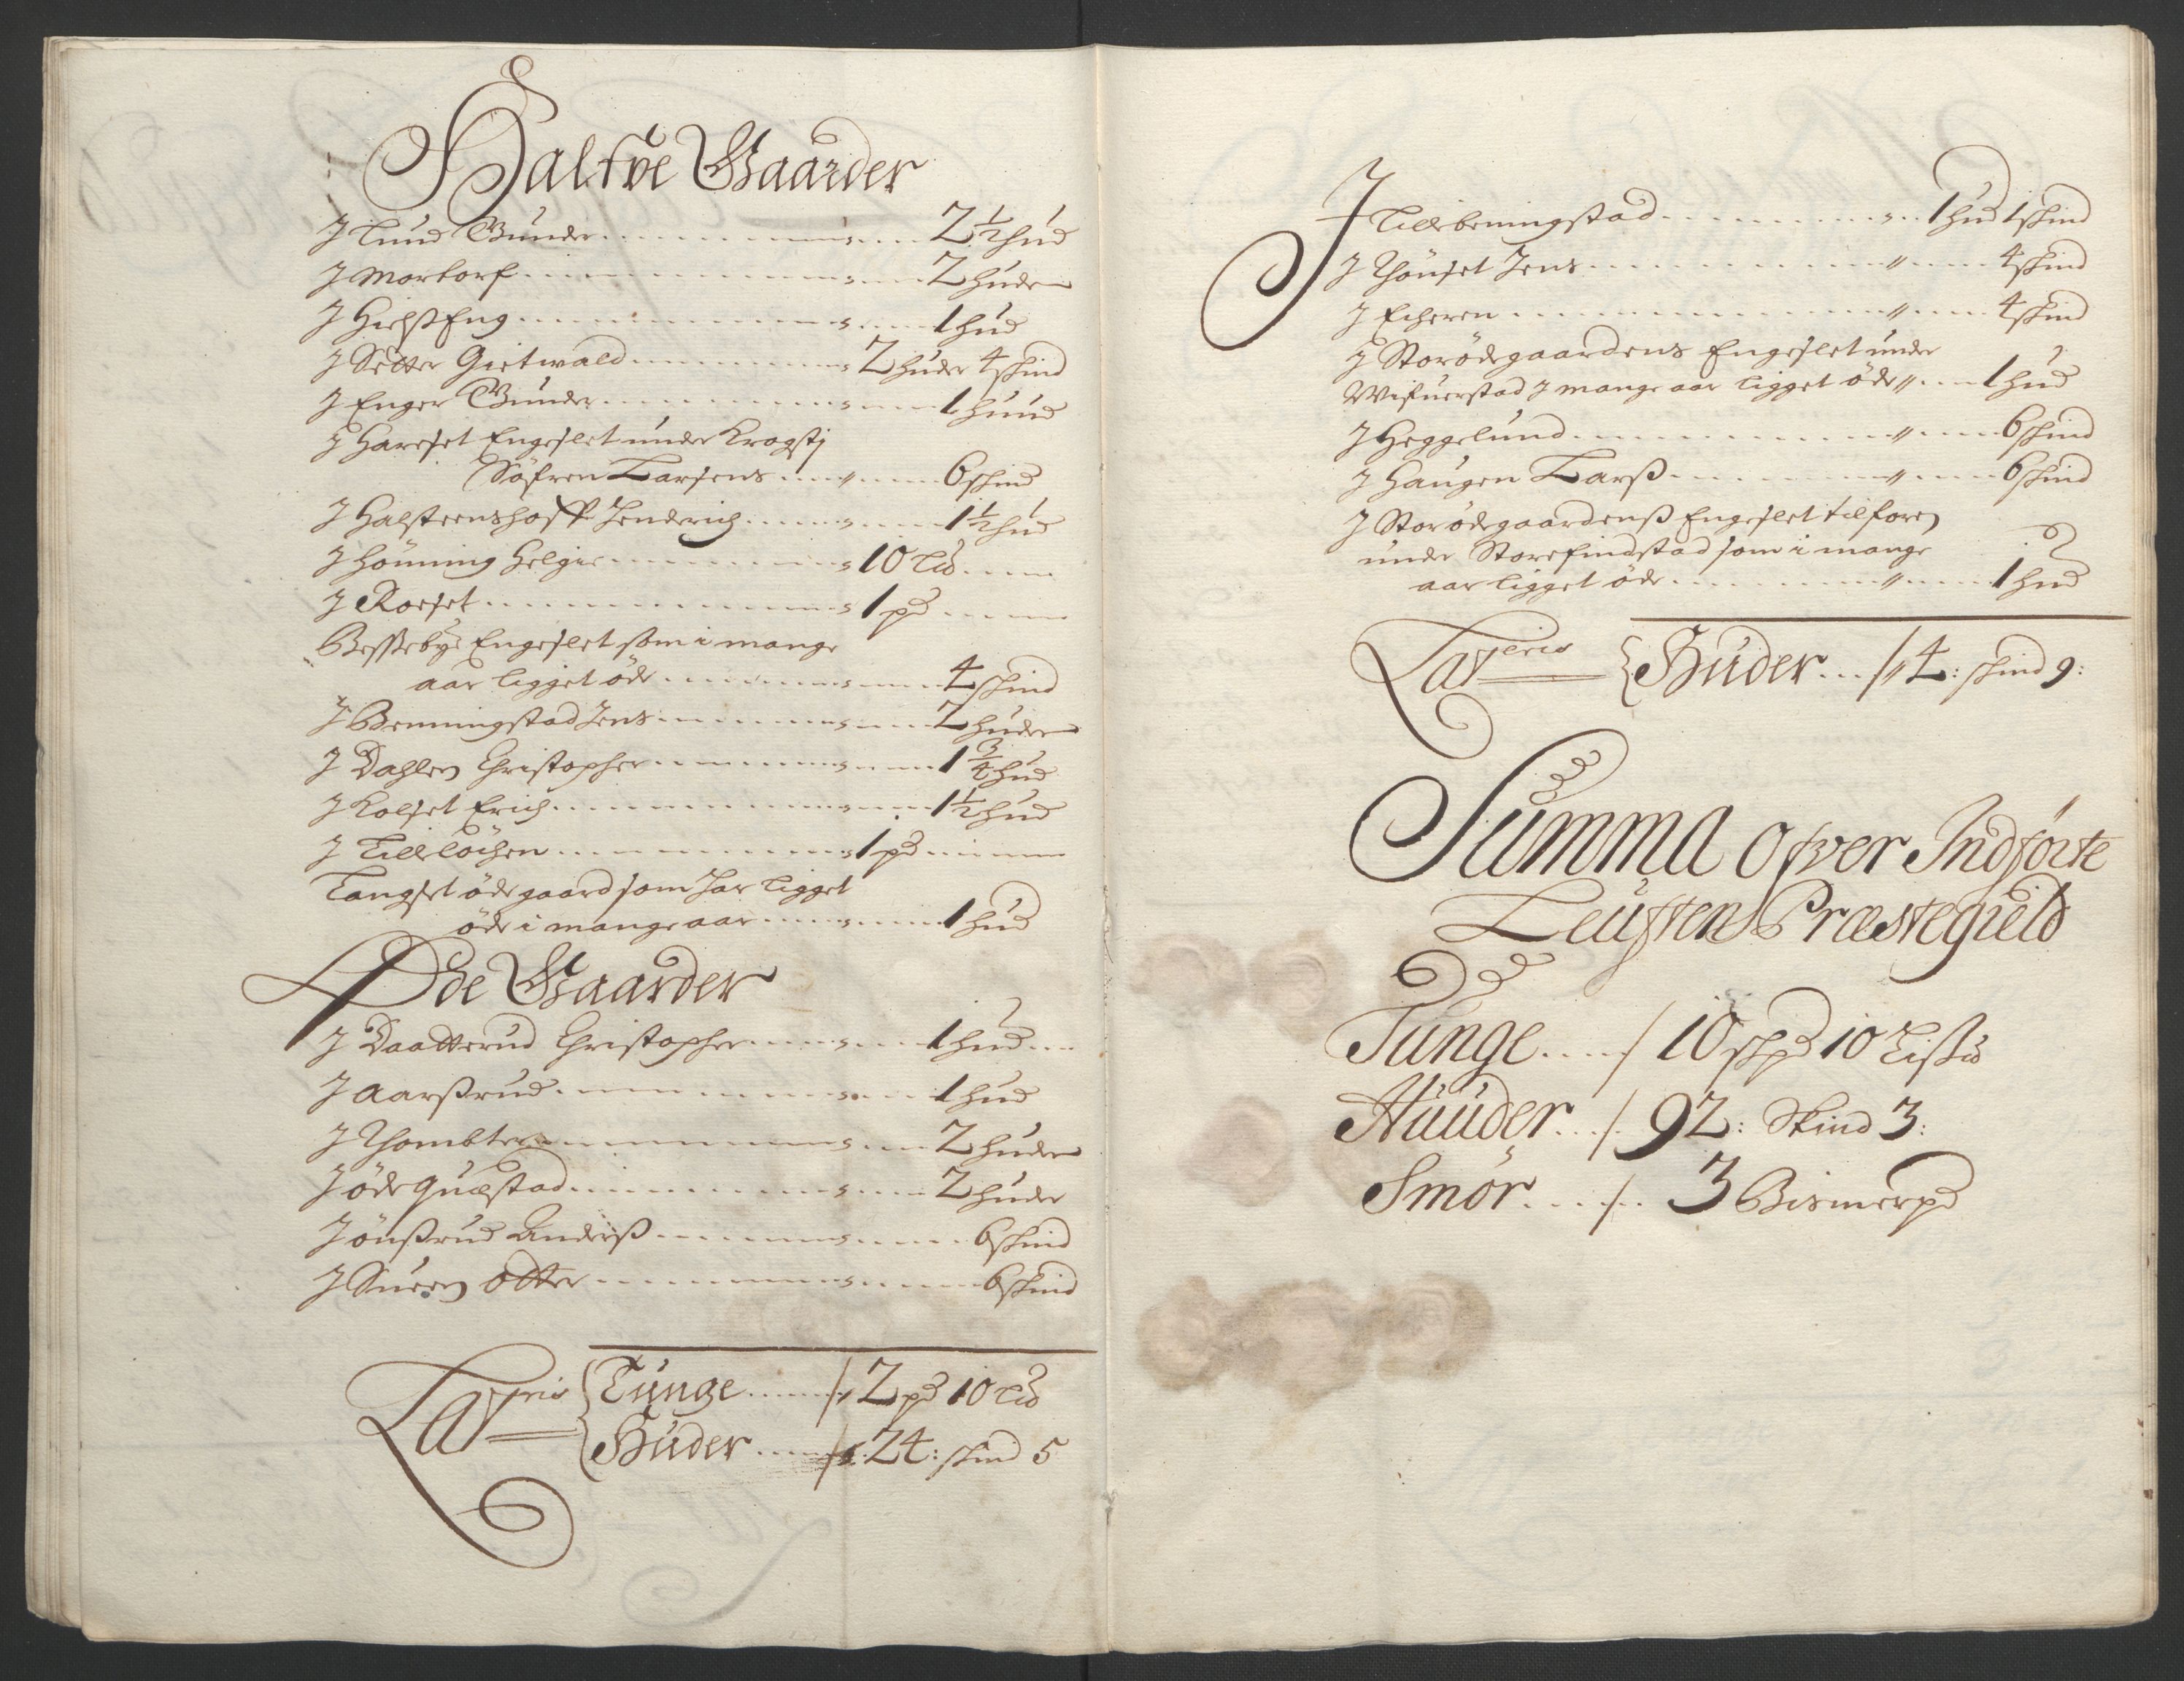 Halfve Gaarder
J Lund Gunder 2½ hud
J Mortorf 2 huder
J HiehstEng 1 hud
J Setter Gietwald 2 huder 4 skind
J Enger Gunder 1 huud
J Harset Engeslet under Krogstj
Söfren Larsens 6 skind
J Halsteenshoff Hendrich 1½ hud
J Hönning Helgie 10 Ld
J Roeset 1 pd
Bessebye Engeslet som i mange
aar ligget öde 4 skind
J Benningstad Jens 2 huder
J Dahlen Christopher 1¾ hud
J Kolset Erich 1½ hud
J Lilleløchen 1 pd
Langset öde gaard som har ligget
öde i mange aar 1 hud
Øde Gaarder
J Daatterud Christopher 1 hud
J Aarsrud 1 hud
J Thombter 2 huder
J öde quæstad 2 huder
J önsrud Anders 6 skind
J Sueen Otter 6 skind
Lateris Tunge 2 pd 10 Ld
Huder 24: skind 5
J Lillebeningstad 1 hud 1 skind
J Thönset Jens 4 skind
J Echeren 4 skind
J Storödegaardens Engeslet under
Wifuerstad J mange aar ligget öde 1 hud
J Heggelund 6 skind
J Haugen Larss 6 skind
J Storödegaardenss Engeslet tilforen
under Storefindstad som i mange
aar ligget öde 1 hud
Lateris Huder 4: skind 9:
Summa Ofver Indførte
Leuften Præstegield
Tunge 10 skpd 10 Lissd
Huuder 92: Skind 3:
Smör 3 Bismerpd